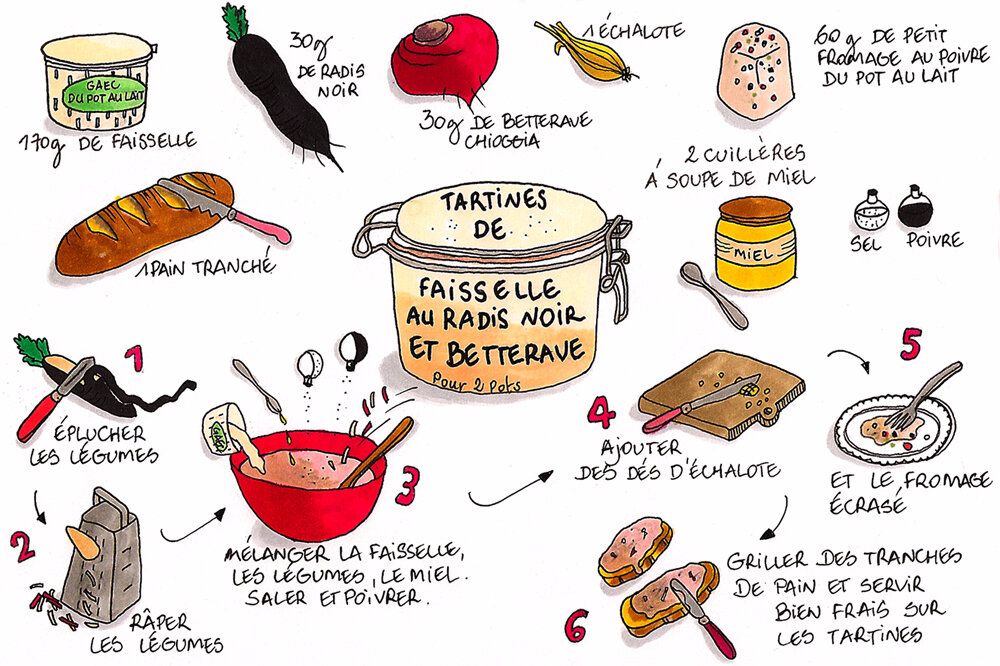 GAEC
DU POT AU LAIT
170g DE FAISSELLE
30g
DE RADIS
NOIR
30g DE BETTERAVE
CHIOGGIA
1 ÉCHALOTE
60 g DE PETIT
FROMAGE AU POIVRE
DU POT AU LAIT
1 PAIN TRANCHÉ
TARTINES
DE
FAISSELLE
AU RADIS NOIR
ET BETTERAVE
Pour 2 Pots
2 CUILLÈRES
À SOUPE DE MIEL
MIEL
SEL
POIVRE
1
ÉPLUCHER
LES LÉGUMES
2
RÂPER
LES LÉGUMES
3
MÉLANGER LA FAISSELLE,
LES LÉGUMES, LE MIEL.
SALER ET POIVRER.
4
AJOUTER
DES DÉS D'ÉCHALOTE
5
ET LE FROMAGE
ÉCRASÉ
6
GRILLER DES TRANCHES
DE PAIN ET SERVIR
BIEN FRAIS SUR
LES TARTINES